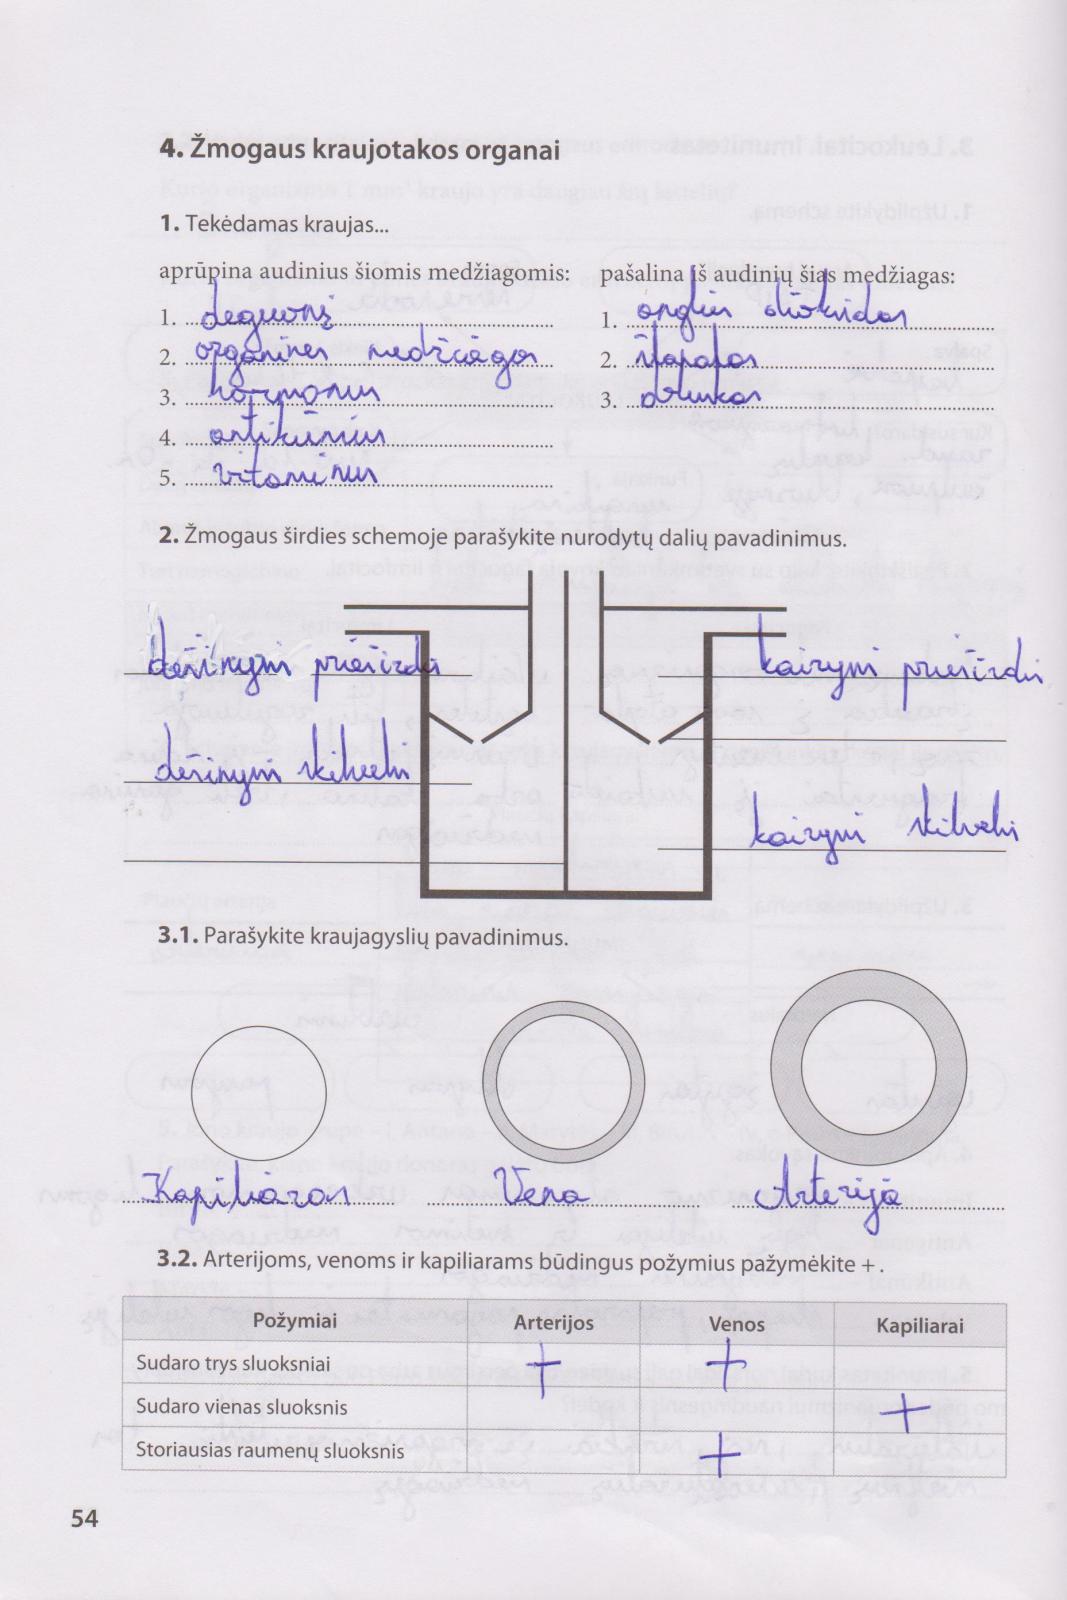 4. Žmogaus kraujotakos organai
1. Tekėdamas kraujas...
aprūpina audinius šiomis medžiagomis:
1. deguonį
2. organines medžiagas
3. hormonus
4. antikūnius
5. vitaminus
pašalina iš audinių šias medžiagas:
1. anglies dioksidas
2. šlapalas
3. druskas
2. Žmogaus širdies schemoje parašykite nurodytų dalių pavadinimus.
dešinysis prieširdis
kairysis prieširdis
dešinysis skilvelis
kairysis skilvelis
3.1. Parašykite kraujagyslių pavadinimus.
Kapiliaras Vena Arterija
3.2. Arterijoms, venoms ir kapiliarams būdingus požymius pažymėkite + .
Požymiai Arterijos Venos Kapiliarai
Sudaro trys sluoksniai + +
Sudaro vienas sluoksnis +
Storiausias raumenų sluoksnis +
54